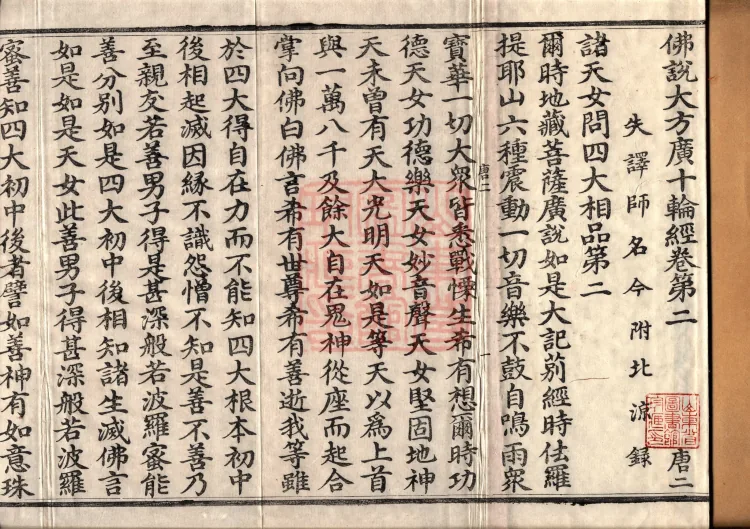 佛說大方廣十輪經卷第二 唐二
失譯師名今附北涼錄
諸天女問四大相品第二
爾時地藏菩薩廣說如是大記莂經時佉羅
提耶山六種震動一切音樂不鼓自鳴雨眾
唐二 一
寶華一切大眾皆悉戰慄生希有想爾時功
德天女功德樂天女妙音聲天女堅固地神
天未曾有天大光明天如是等天以為上首
與一萬八千及餘大自在鬼神從座而起合
掌向佛白佛言希有世尊希有善逝我等雖
於四大得自在力而不能知四大根本初中
後相起滅因緣不識怨憎不知是善不善乃
至親友若善男子得是甚深般若波羅蜜能
善分別如是四大初中後相知諸生滅佛言
如是如是天女此善男子得甚深般若波羅
蜜善知四大初中後者譬如善神有如意珠